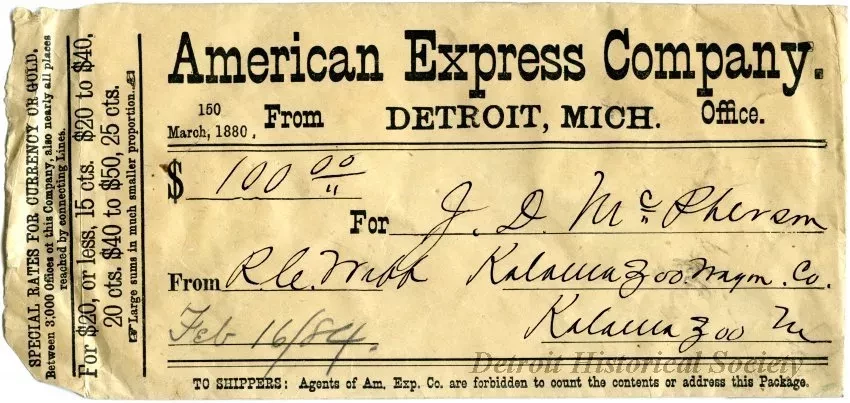 SPECIAL RATES FOR CURRENCY OR GOLD.
Between 3,000 Offices of this Company, also nearly all places
reached by connecting Lines.
For $20, or less, 15 cts. $20 to $40,
20 cts. $40 to $50, 25 cts.
Large sums in much smaller proportion.
American Express Company.
150
March, 1880. From DETROIT, MICH. Office.
$ 100 00
"
For J. D. Mc Pherson
From R.C. Kalamazoo Wagn. Co.
Feb 16/84. Kalamazoo M
Detroit Historical Society
TO SHIPPERS: Agents of Am. Exp. Co. are forbidden to count the contents or address this Package.